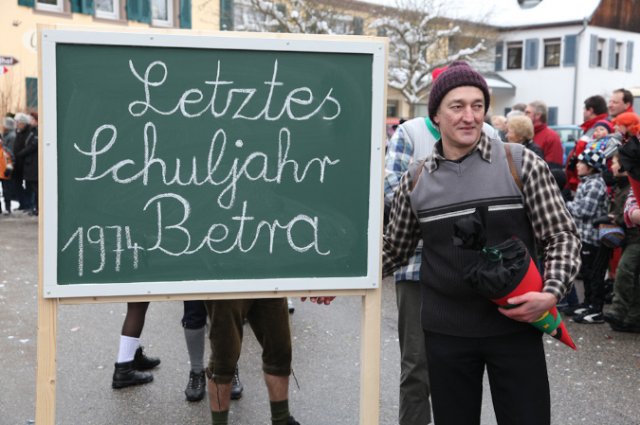 Letztes
Schuljahr
1974 Betra